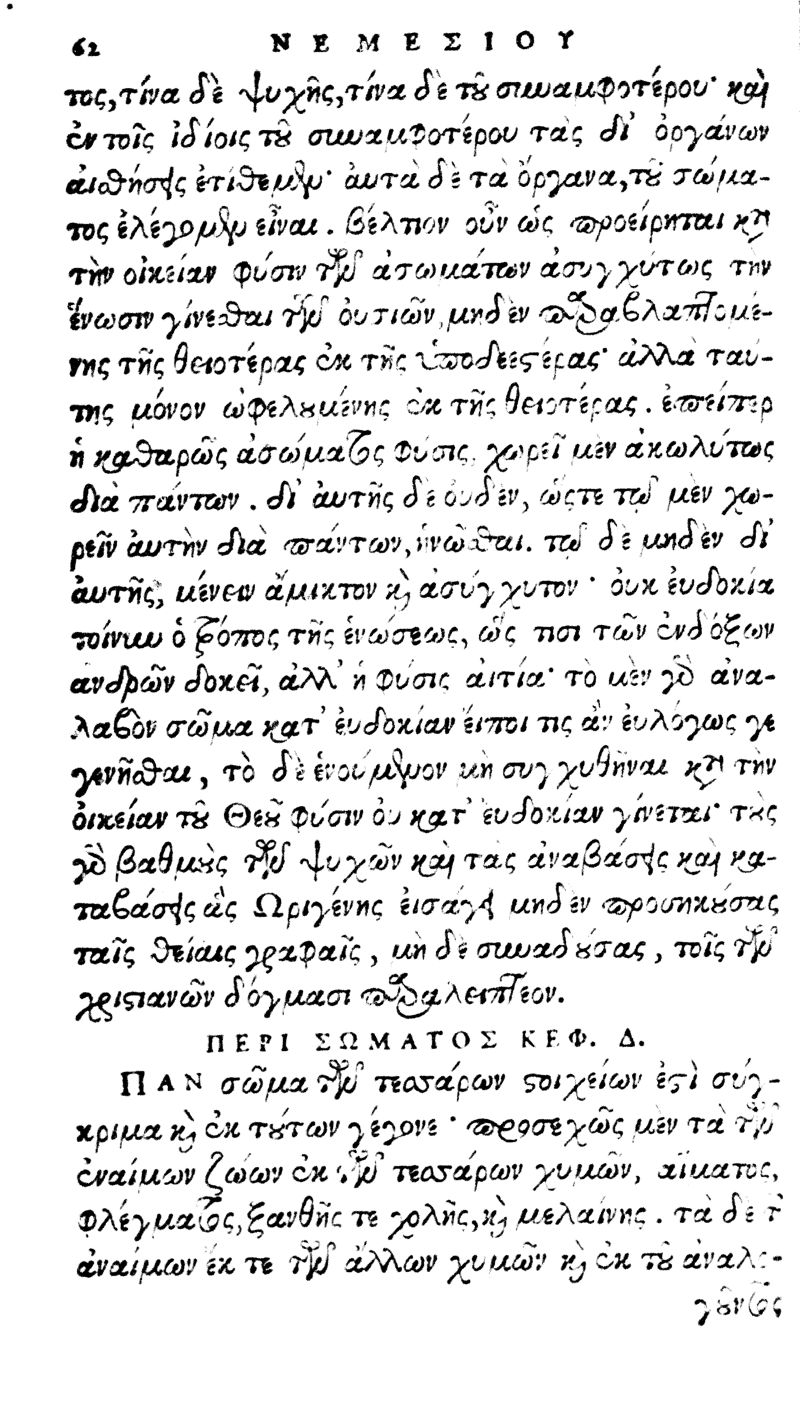 62 ΝΕΜΕΣΙΟΥ
τος, τίνα δὲ ψυχῆς, τίνα δὲ τοῦ συναμφοτέρου· καὶ
ἐν τοῖς ἰδίοις τοῦ συναμφοτέρου τὰς δι' ὀργάνων
αἰσθήσεις ἐτίθεμεν· ἀυτὰ δὲ τὰ ὄργανα, τοῦ σώμα-
τος ἐλέγομεν εἶναι. βέλτιον οὖν ὡς προείρηται κατὰ
τὴν οἰκείαν φύσιν τῶν ἀσωμάτων ἀσυγχύτως τὴν
ἕνωσιν γίνεσθαι τῶν ὀυσιῶν, μηδὲν παραβλαπτομέ-
νης τῆς θειοτέρας ἐκ τῆς ὑποδεεστέρας· ἀλλὰ ταύ-
της μόνον ὠφελουμένης ἐκ τῆς θειοτέρας. ἐπείπερ
ἡ καθαρῶς ἀσώματος φύσις, χωρεῖ μὲν ἀκωλύτως
διὰ πάντων. δι' ἀυτῆς δὲ ὀυδὲν, ὥστε τῷ μὲν χω-
ρεῖν ἀυτὴν διὰ πάντων, ἡνῶσθαι. τῷ δὲ μηδὲν δι'
ἀυτῆς, μένειν ἄμικτον καὶ ἀσύγχυτον· ὀυκ ἐυδοκία
τοίνυν ὁ τρόπος τῆς ἑνώσεως, ὥς τισι τῶν ἐνδόξων
ανδρῶν δοκεῖ, ἀλλ' ἡ φύσις ἀιτία· τὸ μὲν γὰρ ἀνα-
λαβὸν σῶμα κατ' ἐυδοκίαν έιποι τις ἂν ἐυλόγως γε
γενῆσθαι, τὸ δὲ ἑνούμενον μὴ συγχυθῆναι κατὰ τὴν
ὀικείαν τοῦ Θεοῦ φύσιν ὀυ κατ' ἐυδοκίαν γίνεται· τοὺς
γὰρ βαθμοὺς τῶν ψυχῶν καὶ τὰς ἀναβάσεις καὶ κα-
ταβάσεις ἃς Ωριγένης ἐισάγει μηδὲν προσηκούσας
ταῖς θείαις γραφαῖς, μὴ δὲ συναδούσας, τοῖς τῶν
χριστιανῶν δόγμασι παραλειπτέον.
ΠΕΡΙ ΣΩΜΑΤΟΣ ΚΕΦ. Δ.
ΠΑΝ σῶμα τῶν τεσσάρων στοιχείων ἐστὶ σύγ-
κριμα καὶ ἐκ τούτων γέγονε· προσεχῶς μὲν τὰ τῶν
ἐναίμων ζώων ἐκ τῶν τεσσάρων χυμῶν, αἵματος,
φλέγματος, ξανθῆς τε χολῆς, καὶ μελαίνης. τὰ δὲ τῶν
ἀναίμων ἔκ τε τῶν ἄλλων χυμῶν καὶ ἐκ τοῦ ἀναλο-
γοῦντος